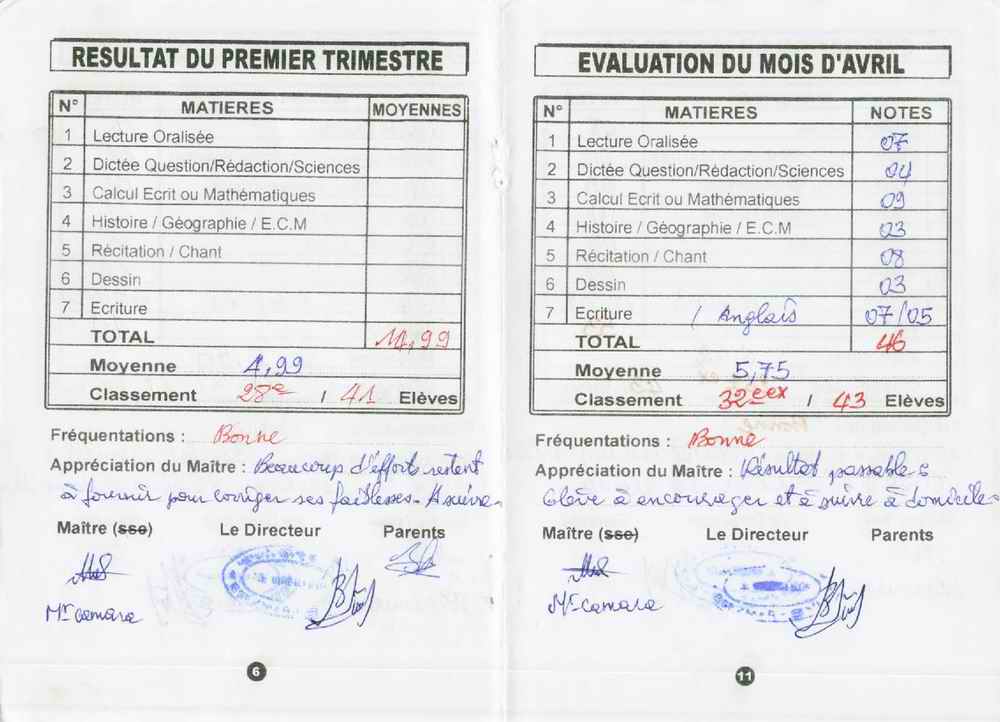 RESULTAT DU PREMIER TRIMESTRE
N° MATIERES MOYENNES
1 Lecture Oralisée
2 Dictée Question/Rédaction/Sciences
3 Calcul Ecrit ou Mathématiques
4 Histoire / Géographie / E.C.M
5 Récitation / Chant
6 Dessin
7 Ecriture
TOTAL 11,99
Moyenne 4,99
Classement 28e / 41 Elèves
Fréquentations : Bonne
Appréciation du Maître : Beaucoup d'efforts restent
à fournir pour corriger ses faiblesses. A suivre.
Maître (sse) Le Directeur Parents
Mr Camara
6
EVALUATION DU MOIS D'AVRIL
N° MATIERES NOTES
1 Lecture Oralisée 07
2 Dictée Question/Rédaction/Sciences 04
3 Calcul Ecrit ou Mathématiques 09
4 Histoire / Géographie / E.C.M 03
5 Récitation / Chant 08
6 Dessin 03
7 Ecriture / Anglais 07/05
TOTAL 46
Moyenne 5,75
Classement 32eex / 43 Elèves
Fréquentations : Bonne
Appréciation du Maître : Résultat passable.
Elève à encourager et à suivre à domicile.
Maître (sse) Le Directeur Parents
Mr Camara
11